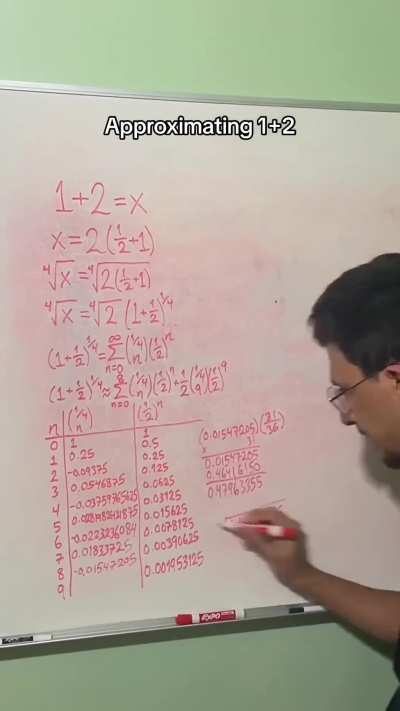 Approximating 1+2
1+2=x
x=2(1/2+1)
⁴√x=⁴√2(1/2+1)
⁴√x=⁴√2(1+1/2)^1/4
(1+1/2)^1/4=∑n=0^∞(1/4 n)(1/2)^n
(1+1/2)^1/4≈∑n=0^8(1/4 n)(1/2)^n+1/2(1/4 9)(1/2)^9
n (1/4 n) (1/2)^n
0 1 1
1 0.25 0.5
2 -0.09375 0.25
3 0.0546875 0.125
4 -0.03759765625 0.0625
5 0.03125
6 -0.0223236084 0.015625
7 0.01833725 0.0078125
8 -0.01547205 0.00390625
9 0.001953125
(0.01547205)(31/36)
x 31
0.01547205
0.46416150
0.47963355
EXPO